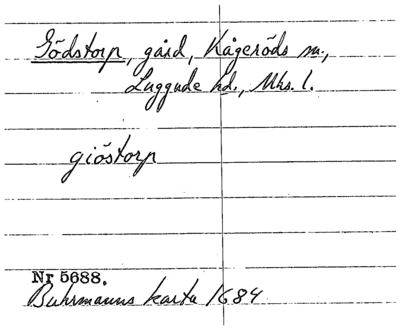 Gödstorp, gård, Kågeröds sn.,
Luggude hd., Mhs. l.
giöstorp
Nr 5688.
Buhrmanns karta 1684